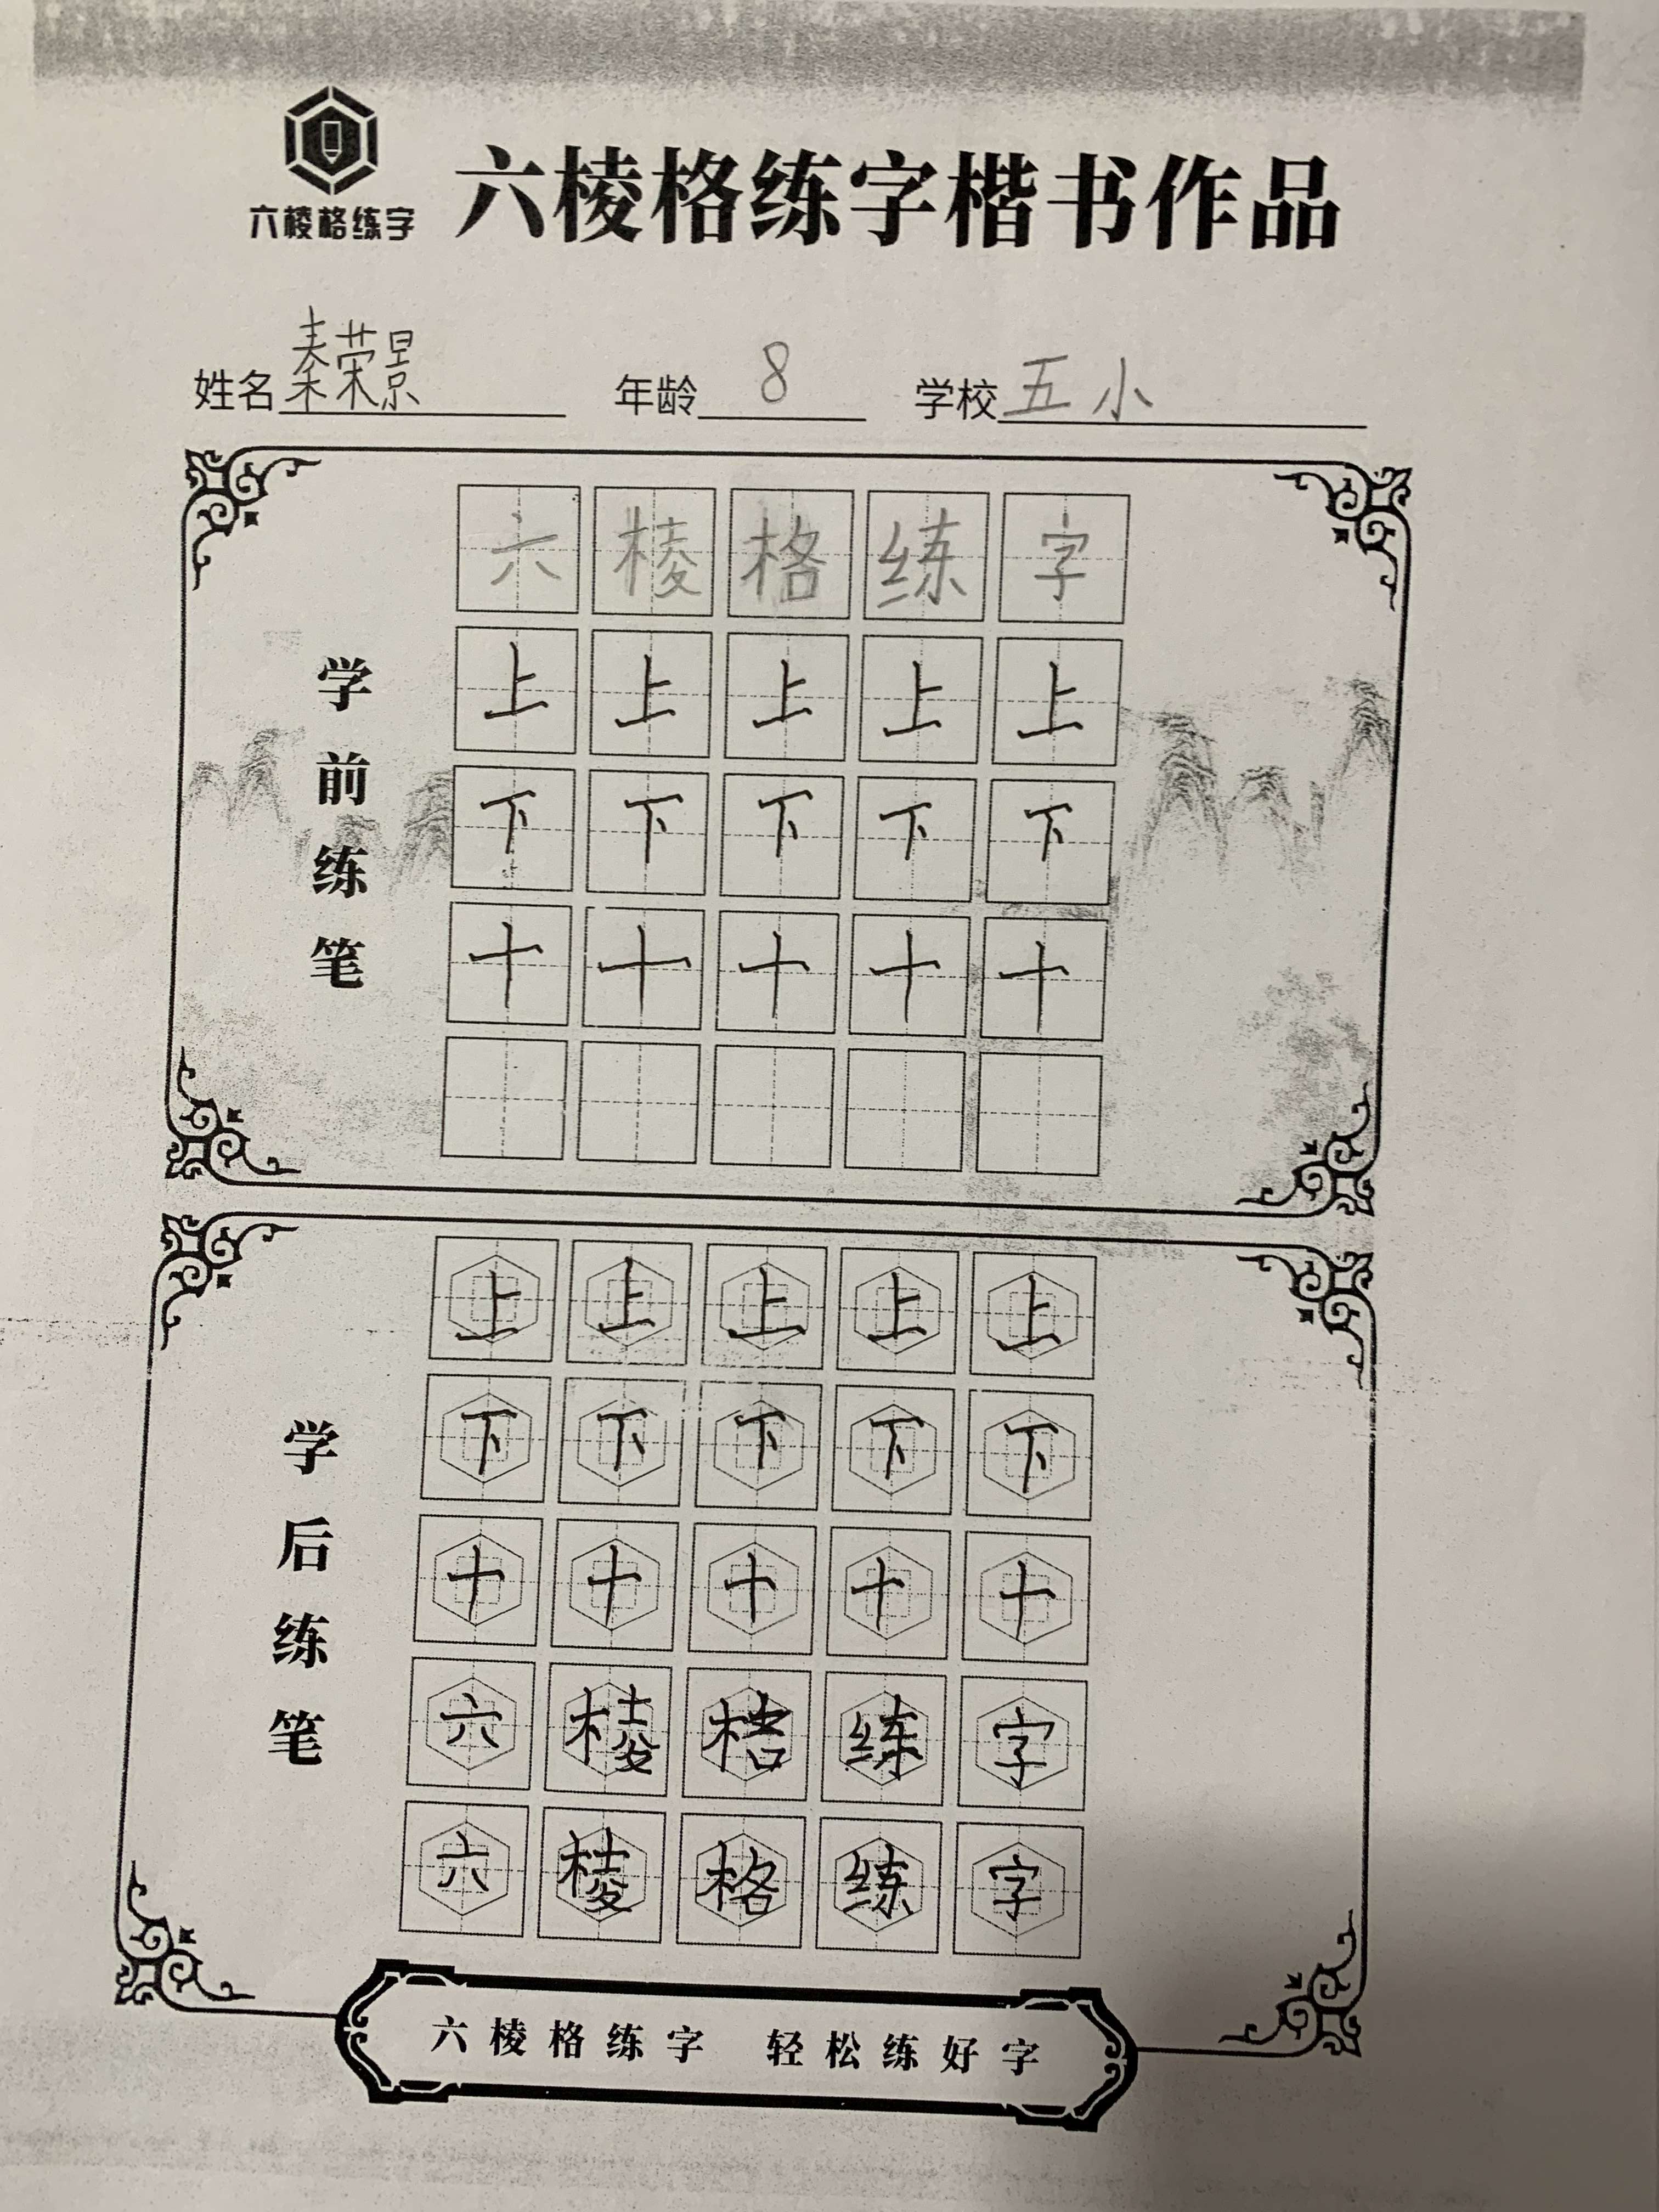 六棱格练字
六棱格练字楷书作品
姓名 秦荣景 年龄 8 学校 五小
学前练笔
六棱格练字
上上上上上
下下下下下
十十十十十
学后练笔
上上上上上
下下下下下
十十十十十
六棱格练字
六棱格练字
六棱格练字 轻松练好字